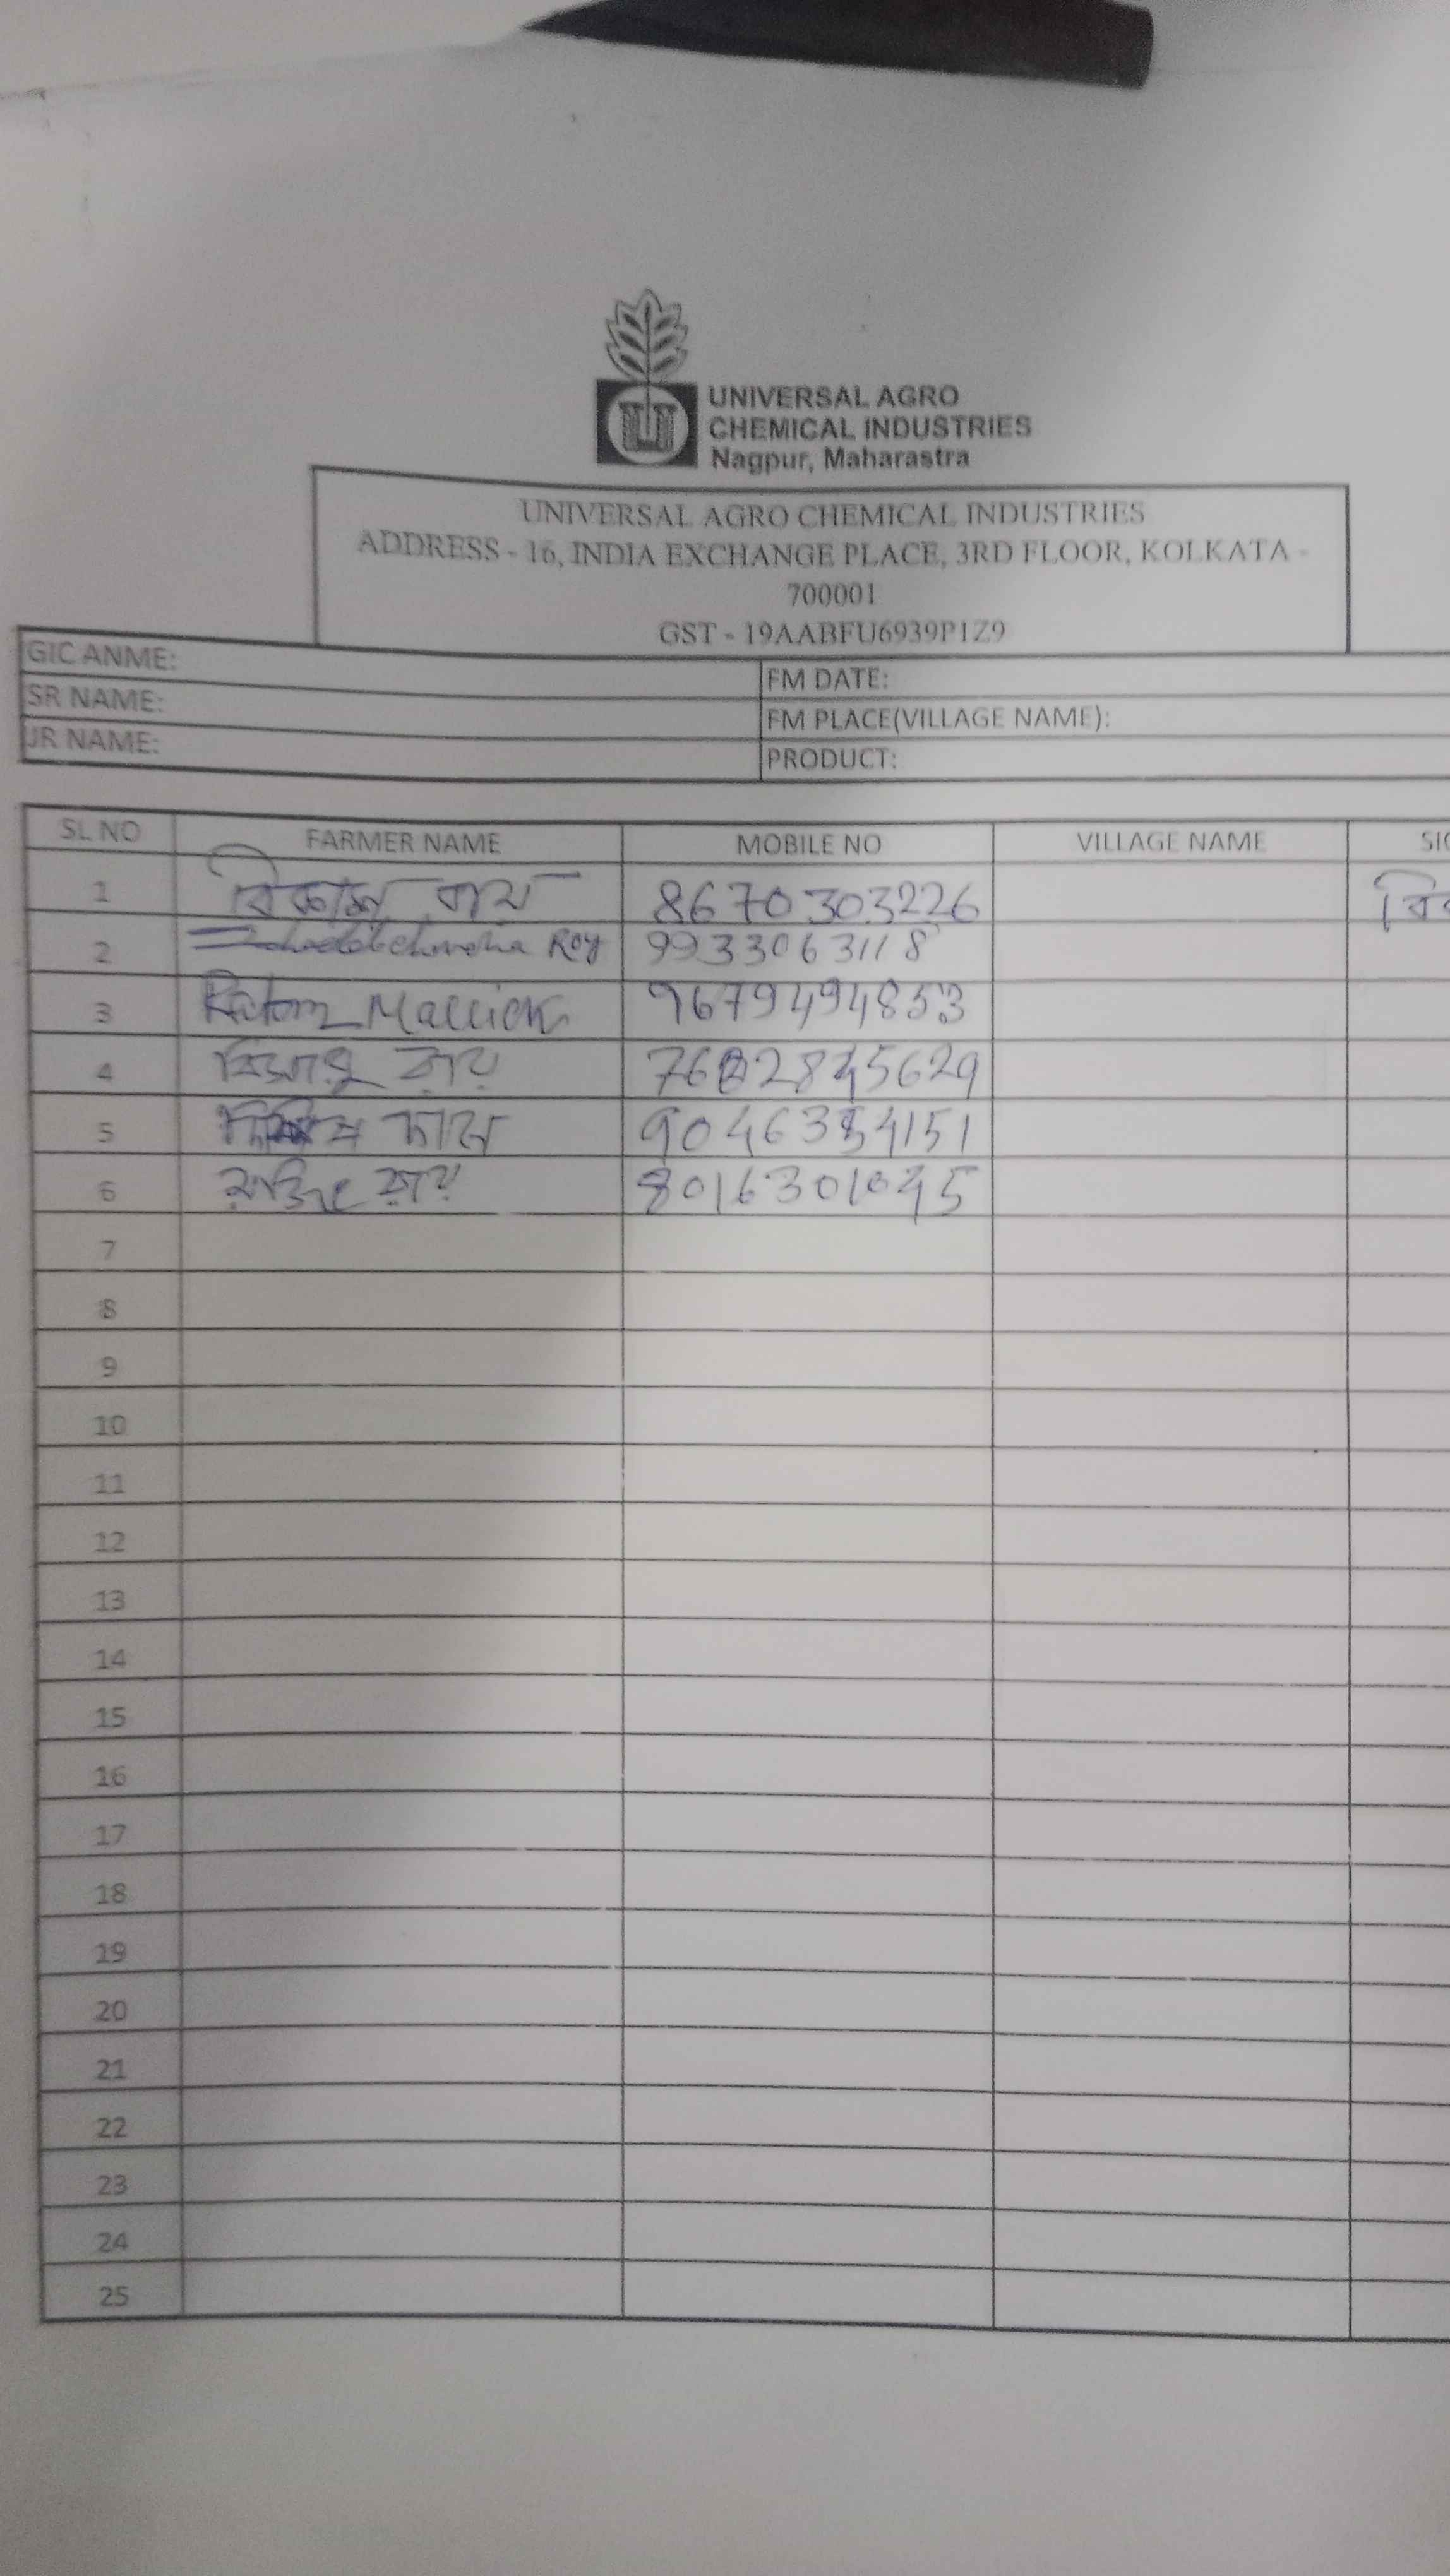 UNIVERSAL AGRO
CHEMICAL INDUSTRIES
Nagpur, Maharastra
UNIVERSAL AGRO CHEMICAL INDUSTRIES
ADDRESS - 16, INDIA EXCHANGE PLACE, 3RD FLOOR, KOLKATA -
700001
GST - 19AABFU6939P1Z9
GIC ANME:
FM DATE:
SR NAME:
FM PLACE(VILLAGE NAME):
JR NAME:
PRODUCT:
SL NO FARMER NAME MOBILE NO VILLAGE NAME
1 বিকাশ রায় 8670303226
2 Roy 9933063118
3 Ratan Mallick 9679494853
4 রায় 
5
6 রায় 8016301045
7
8
9
10
11
12
13
14
15
16
17
18
19
20
21
22
23
24
25